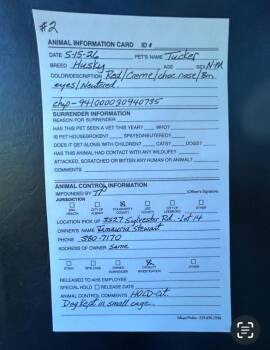 #2
ANIMAL INFORMATION CARD ID #
DATE 5-15-26 PET'S NAME Tucker
BREED Husky AGE SEX N-M
COLOR/DESCRIPTION Red/Creme/choc nose/Brn
eyes/Neutered.
chip-941000030940735
SURRENDER INFORMATION
REASON FOR SURRENDER
HAS THIS PET SEEN A VET THIS YEAR? WHO?
IS PET HOUSEBROKEN? SPAYED/NEUTERED?
DOES IT GET ALONG WITH CHILDREN? CATS? DOGS?
HAS THIS ANIMAL HAD CONTACT WITH ANY WILDLIFE?
ATTACKED, SCRATCHED OR BITTEN ANY HUMAN OR ANIMAL?
COMMENTS
ANIMAL CONTROL INFORMATION
IMPOUNDED BY
(Officer's Signature)
JURISDICTION
LOCATION PICK UP 3527 Sylvester Rd. Lot 14
OWNER'S NAME Stewart
PHONE 380-7170
ADDRESS OF OWNER Same
STRAY BITE CASE OWNER SURRENDER CRUELTY INVESTIGATION OTHER
RELEASED TO AHS EMPLOYEE
SPECIAL HOLD RELEASE DATE
ANIMAL CONTROL COMMENTS HOLD-Cit.
Dog kept in small cage.